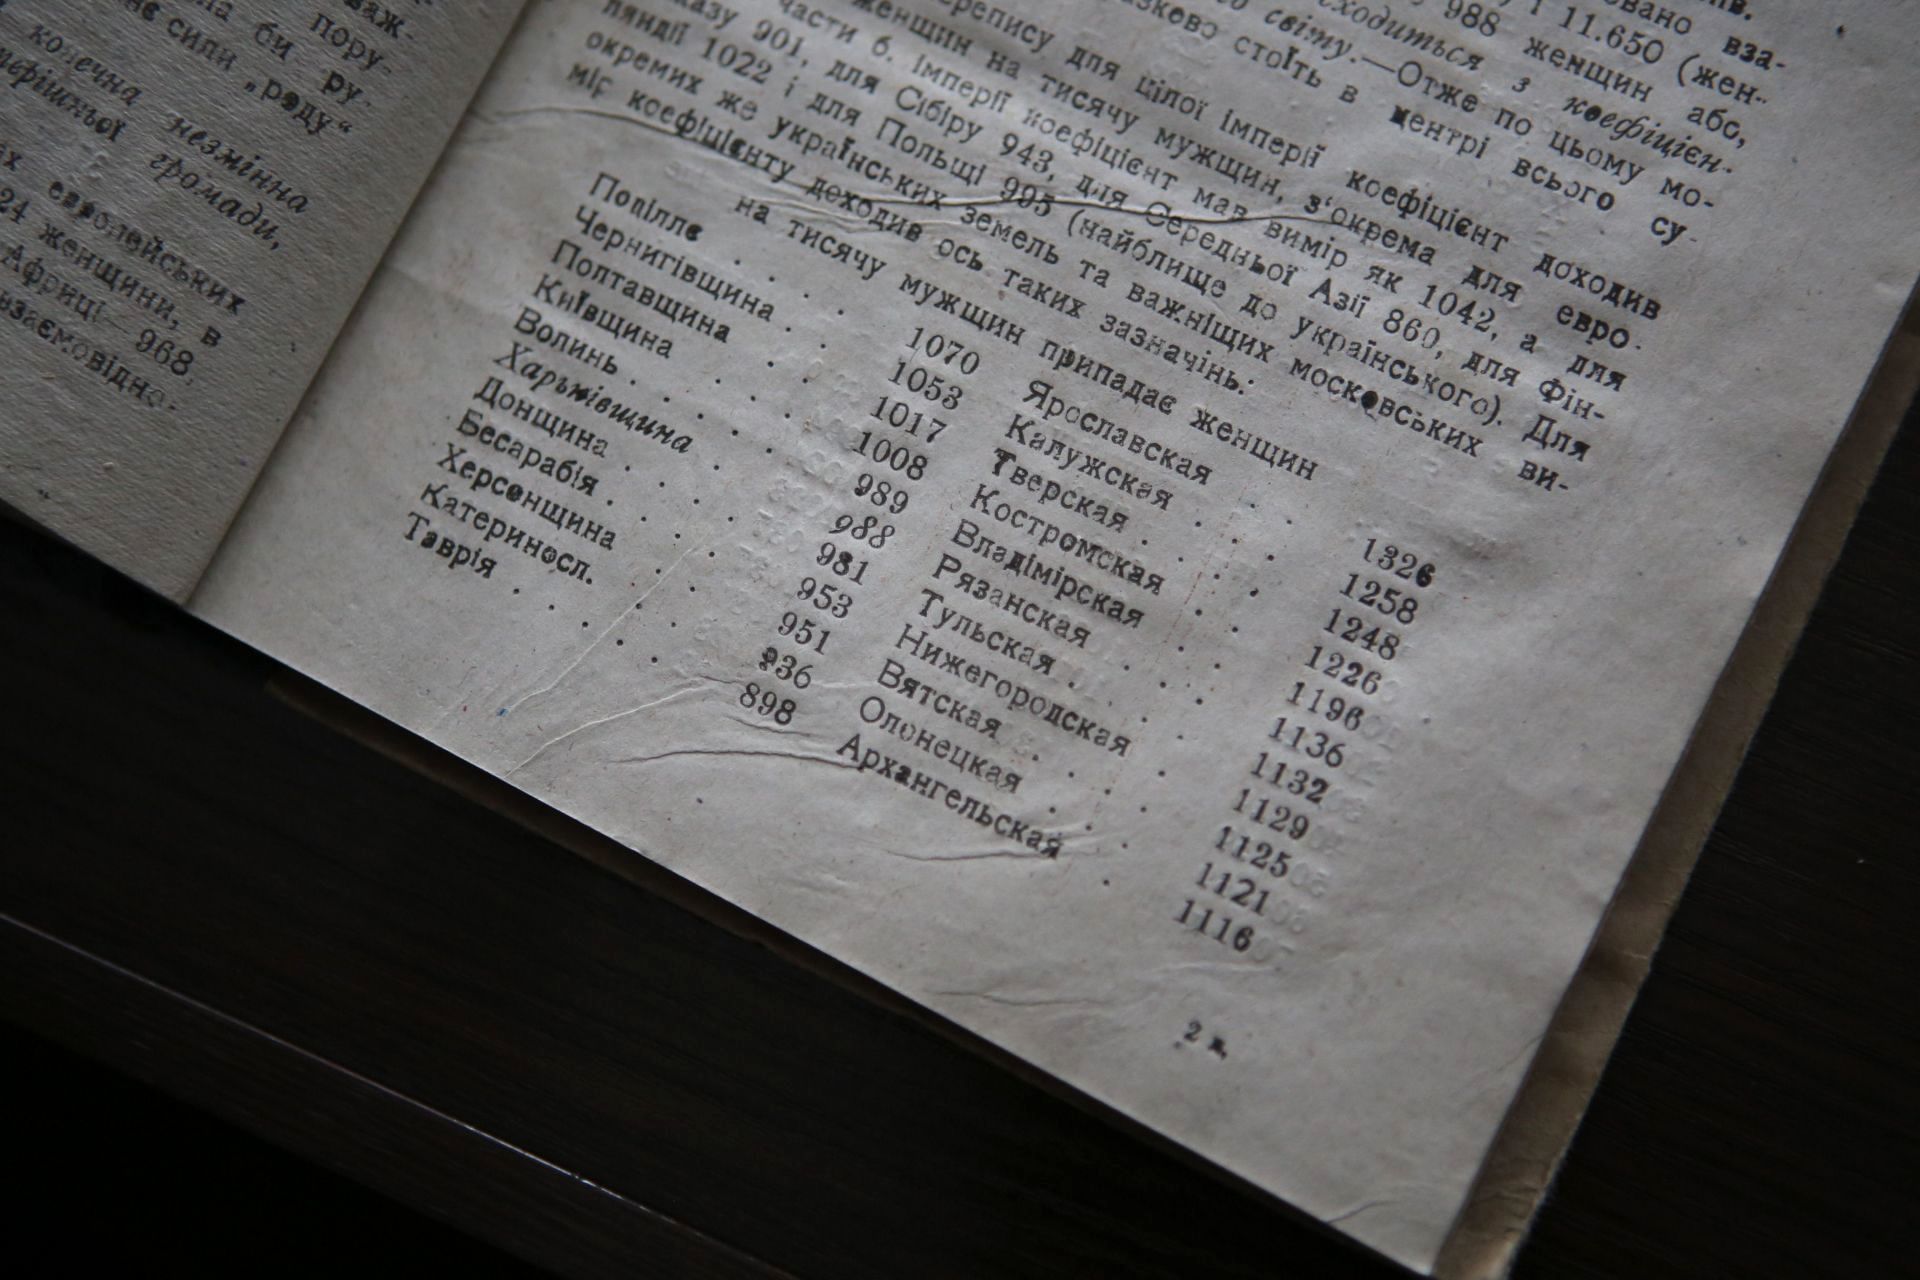 важ-
пору-
на би ру-
не сили „роду“
конечна незмінна
громади,
европейських
24 женщини, в
Африці—968,
взаємовідно-
вза-
і 11.650 (жен-
988 женщин або,
сходиться з коефіцієн-
світу.—Отже по цьому мо-
стоїть в центрі всього су-
перепису для цілої імперії коефіцієнт доходив
женщин на тисячу мужщин, з'окрема для евро-
части б. імперії коефіцієнт мав вимір як 1042, а для
901, для Сібіру 943, для Середньої Азії 860, для Фін-
ляндії 1022 і для Польщі 995 (найблище до українського). Для
окремих же українських земель та важніщих московських ви-
мір коефіцієнту доходив ось таких зазначінь:
на тисячу мужщин припадає женщин
Поділле . . . . 1070 Ярославская . . 1326
Чернигівщина . . . 1053 Калужская . . . 1258
Полтавщина . . . 1017 Тверская . . . . 1248
Київщина . . . . 1008 Костромская . . 1226
Волинь . . . . . 989 Владімірская . . 1196
Харьківщина . . . 988 Рязанская . . . 1136
Донщина . . . . 981 Тульская . . . . 1132
Бесарабія . . . . 953 Нижегородская . . 1129
Херсонщина . . . 951 Вятская . . . . 1125
Катериносл. . . . 936 Олонецкая . . . 1121
Таврія . . . . . 898 Архангельская . . 1116